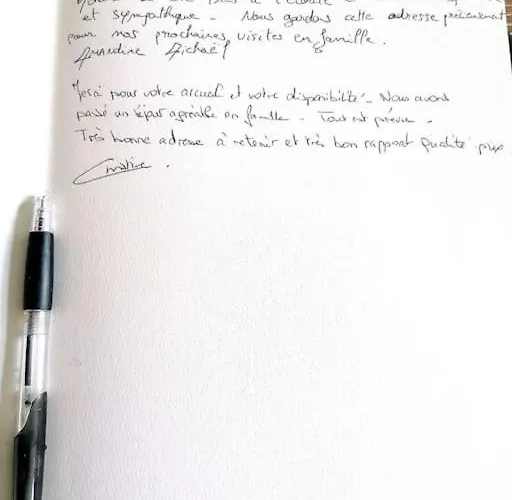 et sympathique - Nous gardons cette adresse précieusement
pour nos prochaines visites en famille.
Amandine Michaël
Merci pour votre accueil et votre disponibilité - Nous avons
passé un séjour agréable en famille - Tout est prévu -
Très bonne adresse à retenir et très bon rapport qualité prix
Christine.